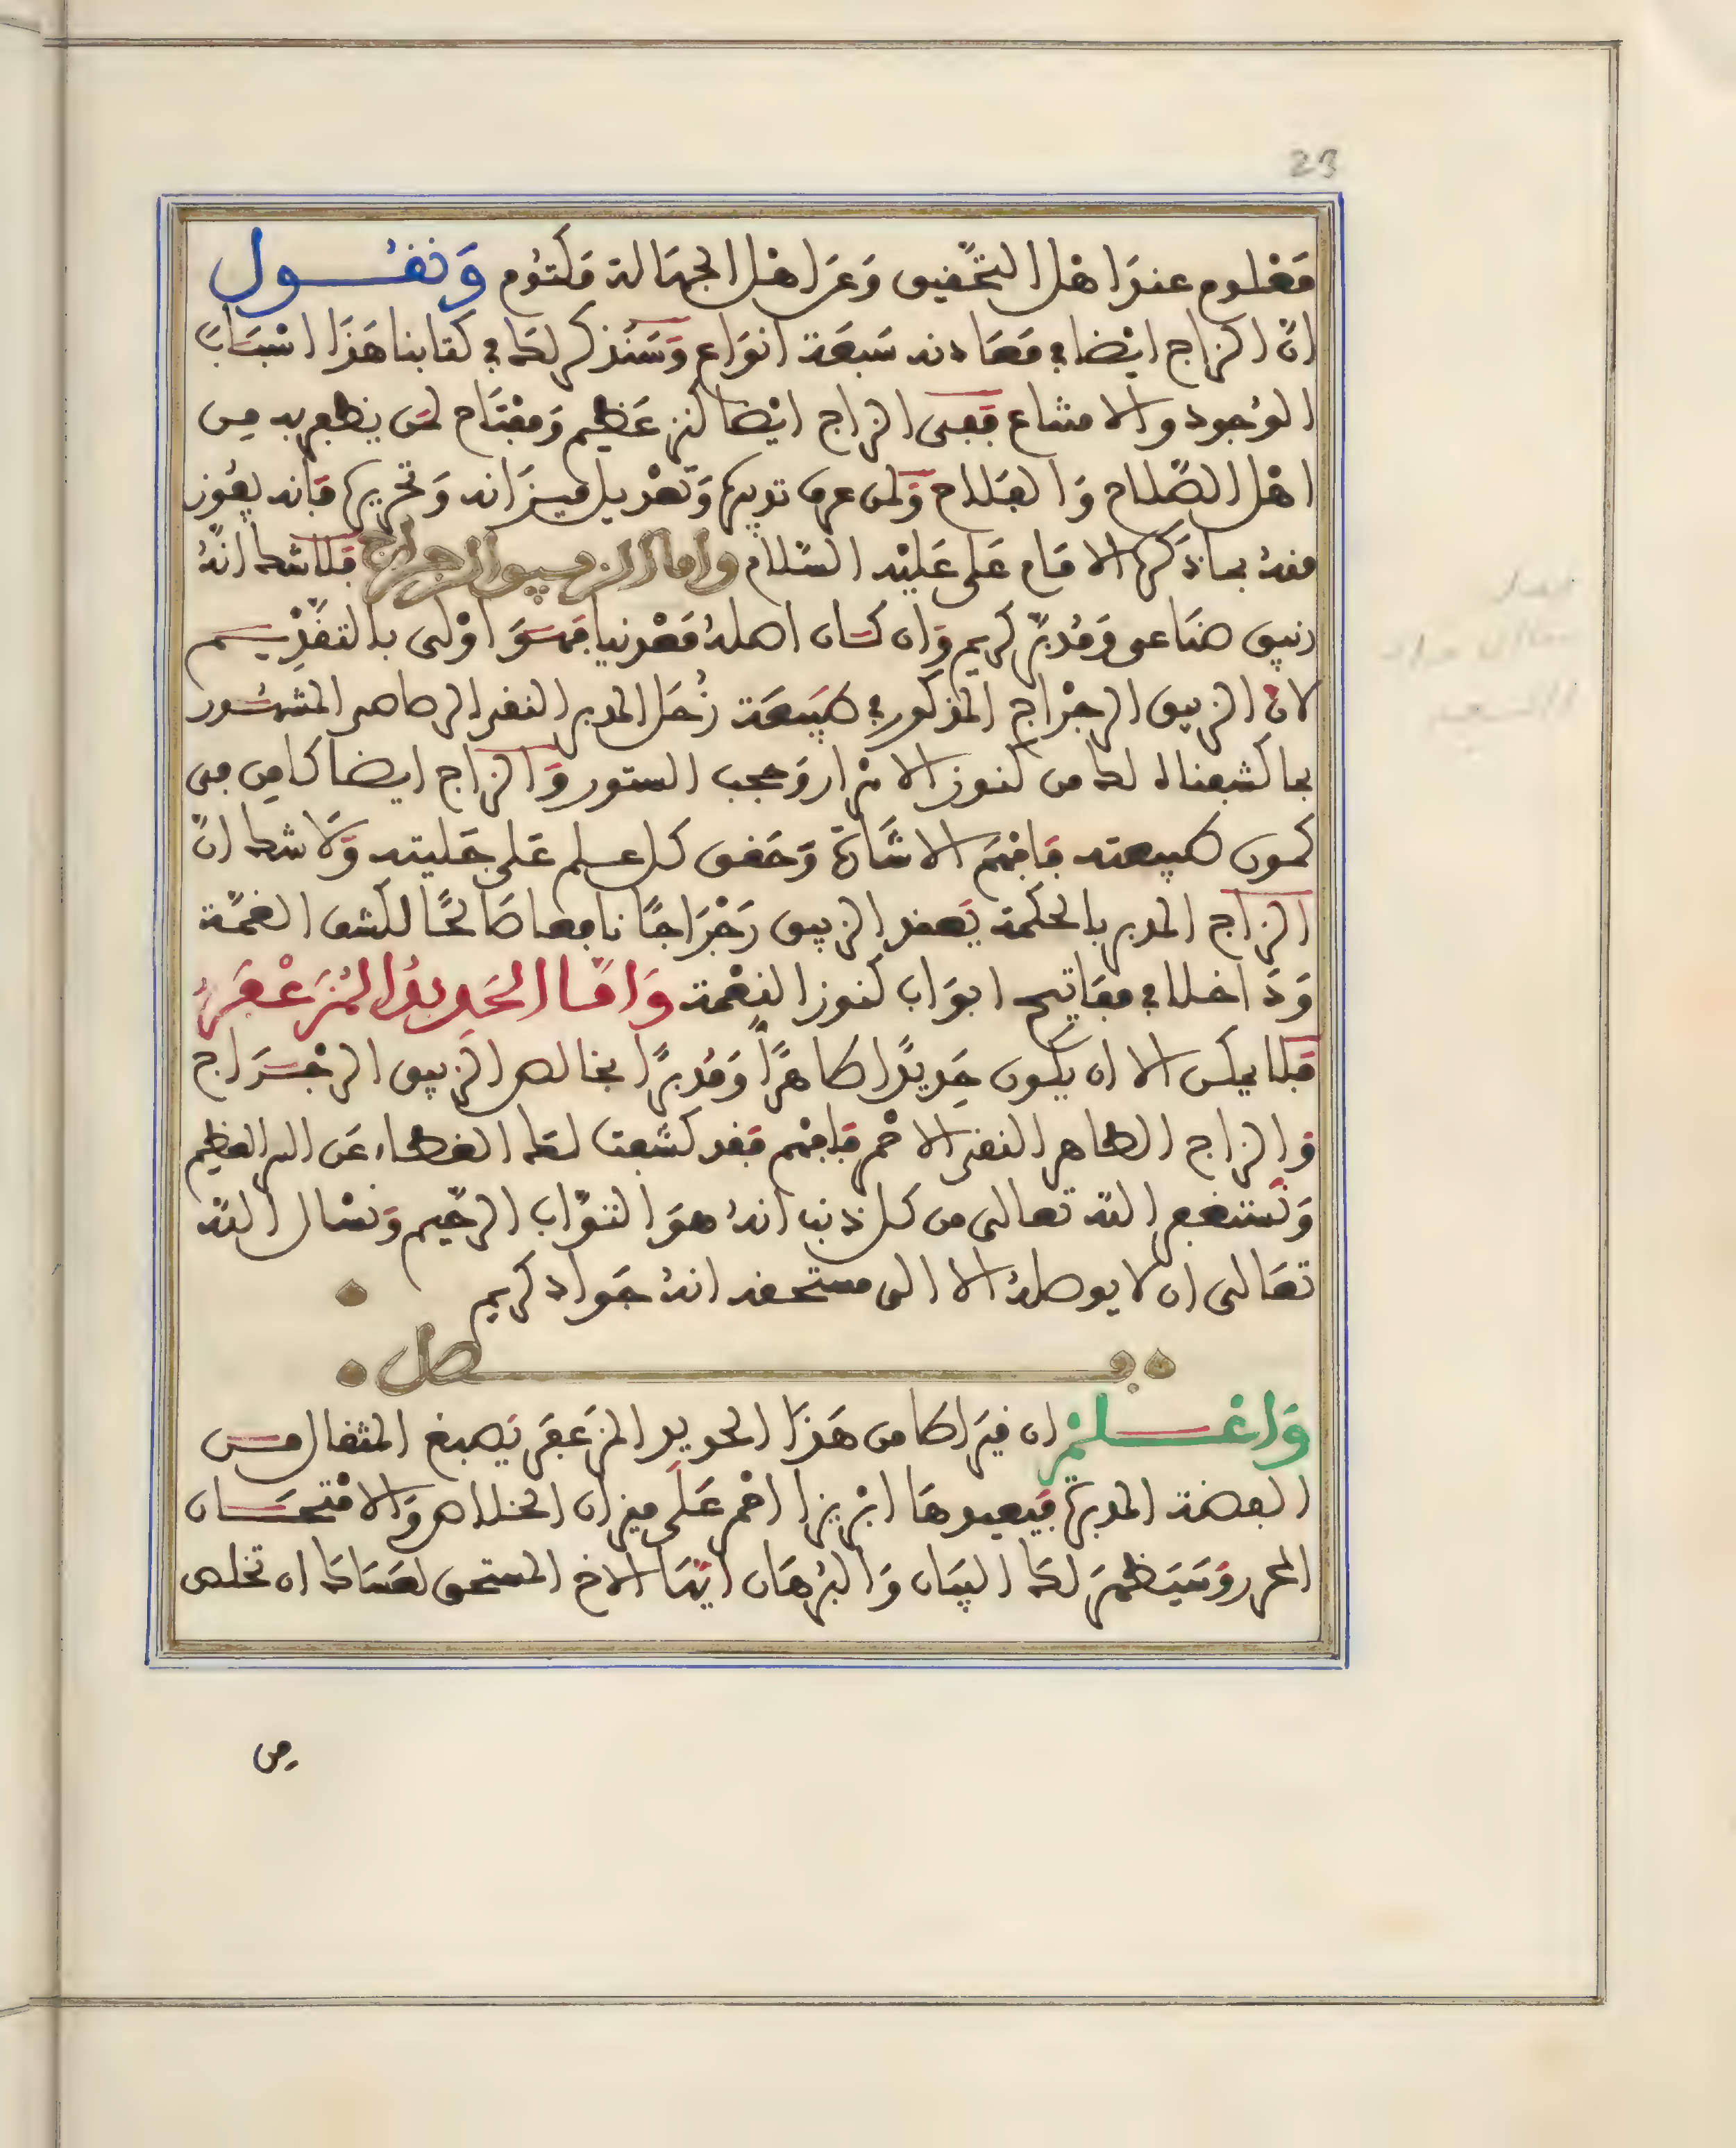 23
مَعْلوم عندَ اهْل التحْقيق وَعَن اهْل الجهَالة مَكتوُم وَنقُــول
انّ الزاج ايْضا في مَعَادنه سَبعَة انوَاع وَسَنذكر لك في كتابنا هَذَا اسْبَابَ
الوُجود والامتناع ففى الزاج ايْضا كنز عَظيم وَمفْتَاح لمن يظفر به من
اهْل الصّلاح وَالفلاح وَلمن عرف تدبيرهُ وَتعْديل ميزَانه وَتحريرهُ فانه يفوُز
منهُ بما ذكرهُ الامَام عَلى عَليْه السّلام واما الزيبق الرجراج فلا شك انهُ
زئبق صنَاعى وَمُدبّر كريم وَان كان اصلهُ مَعْدنيا فهوَ اوْلى بالتقدِيــم
لانّ الزيبق الرجْراج المذكور في طبيعَة زُحَل المدبر النقى الرصاص المشهُور
بما كشفناه لك من كنوز الاسْرار وَحجب الستور وَالزاج ايضا كامِن فى
كمون طبيعته فافهَم الاشَارَة وَحَقق كل علم عَلى جَليته وَلا شك انّ
الزاج المدبر بالحكمة يَعقد الزيبق رَجْرَاجًا نافعا صَالحًا لكشف الغمّة
وَدَاخلا في مفاتيح ابوَاب كنوز النِعْمة وَامَّا الحَدِيدُ المُزَعْفَرُ
فلا يمكن الا ان يكون حَدِيدًا طاهرًا وَمُدبرًا بخالص الزيبق الرجْــرَاج
وَالزاج الطاهر النقى الاحمر فافهَم فقد كشفت لك الغطاء عَن السر العَظيم
وَنستغفر الله تعالى من كل ذنب انهُ هوَ التوّاب الرحّيم وَنسْال الله
تعَالى ان لا يوصلهُ الا الى مستحقه انهُ جَواد كريم
فــــصل
وَاعْــلمْ ان قيرَاطا من هَذَا الحديد المزعفَر يَصبغ المثقال من
الفضة المدبرة فيعيدهَا ابْريزا احْمر عَلَى ميزان الخلاص وَالامْتحَــان
المحرر وَسَيَظهَرَ لك البيَان وَالبُرهَان ايّهَا الاخ المستحق لعَسَاك ان تخلص
من